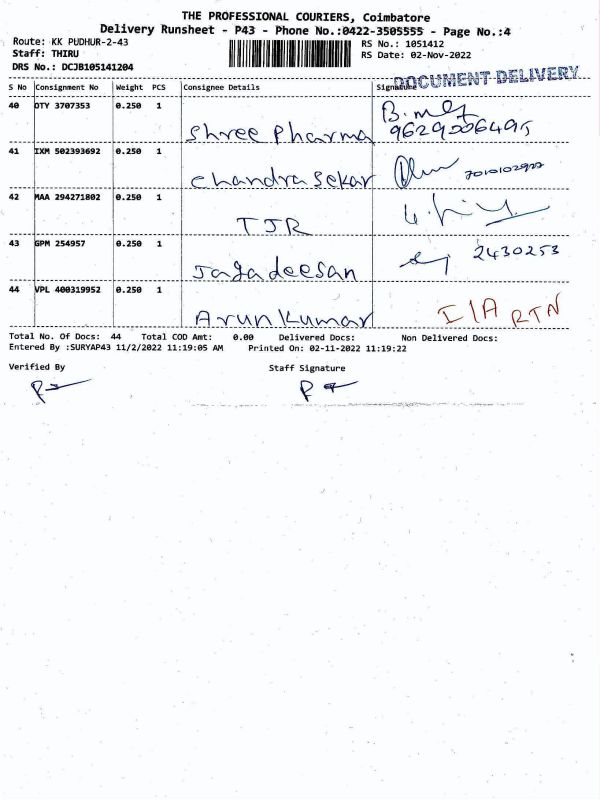 THE PROFESSIONAL COURIERS, Coimbatore
Delivery Runsheet - P43 - Phone No.:0422-3505555 - Page No.:4
Route: KK PUDHUR-2-43
RS No.: 1051412
Staff: THIRU
RS Date: 02-Nov-2022
DRS No.: DCJB105141204
DOCUMENT DELIVERY
S No Consignment No Weight PCS Consignee Details Signature
40 DTY 3707353 0.250 1
Shree Pharma 9629006495
41 IXM 502393692 0.250 1
Chandra Sekar
42 MAA 294271802 0.250 1
TJR
43 GPM 254957 0.250 1
Jagadeesan 2430253
44 VPL 400319952 0.250 1
Arun Kumar I/A RTN
Total No. Of Docs: 44 Total COD Amt: 0.00 Delivered Docs: Non Delivered Docs:
Entered By :SURYAP43 11/2/2022 11:19:05 AM Printed On: 02-11-2022 11:19:22
Verified By Staff Signature